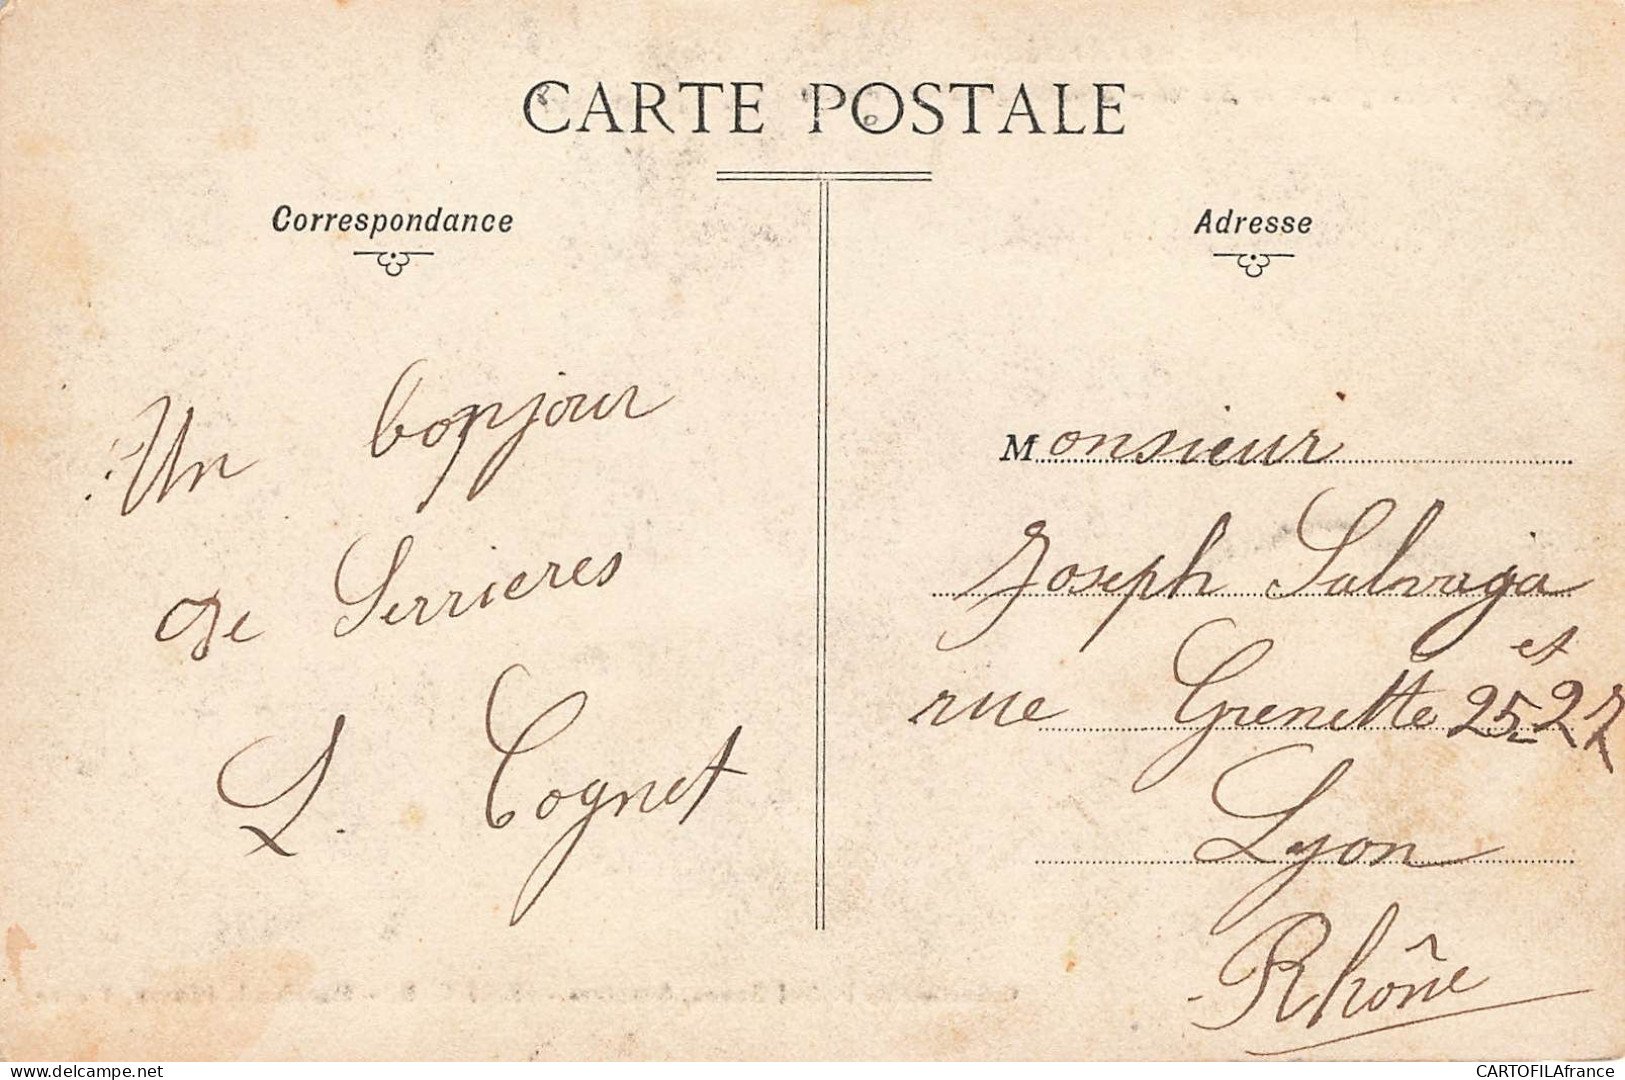 CARTE POSTALE
Correspondance
Adresse
Un bonjour
de Serrieres
L. Cognet
Monsieur
Joseph Salvaga
rue Grenette 25 et 27
Lyon
Rhône
CARTOFILAfrance